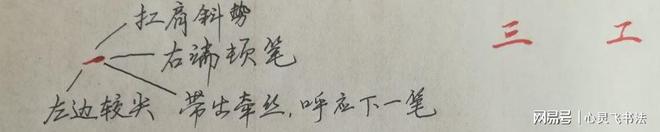 扛肩斜势
右端顿笔
左边较尖 带出牵丝,呼应下一笔
三 工
网易号 | 心灵飞书法